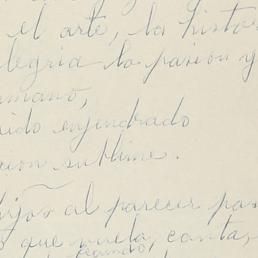 el arte, la histor
alegria la pasion y
umano,
ido engendrado
cion sublime.
hijos al parecer pas
s que vuela, canta,
fecundo,